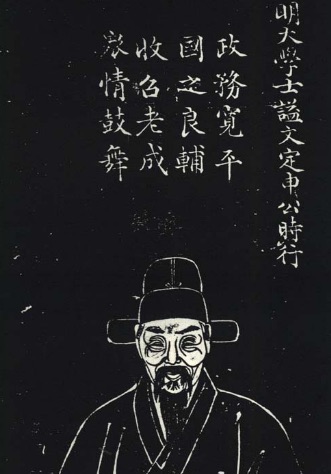 明大學士謚文定申公時行
政務寬平
國之良輔
收召老成
眾情鼓舞